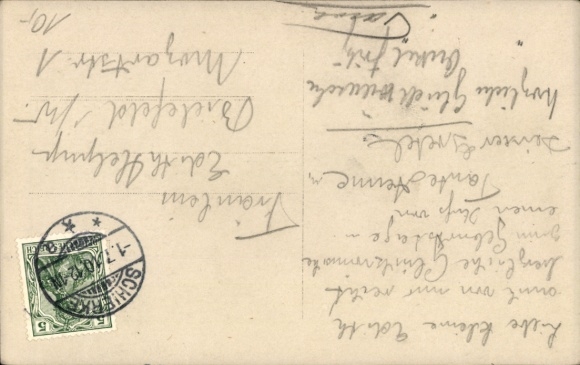 Liebe kleine Edith
auch von mir recht
herzliche Glückwünsche
zum Geburtstage u.
einen Kuß von
Tante Henne u.
Deiner Gretel
Herzliche Glückwünsche
" Onkel Fritz
"
Fräulein
Edith
Bielefeld i/W.
Mozartstr. 1
10,-
SCHIERKE
-1.7.10.12-1N.
* *
a
5 5